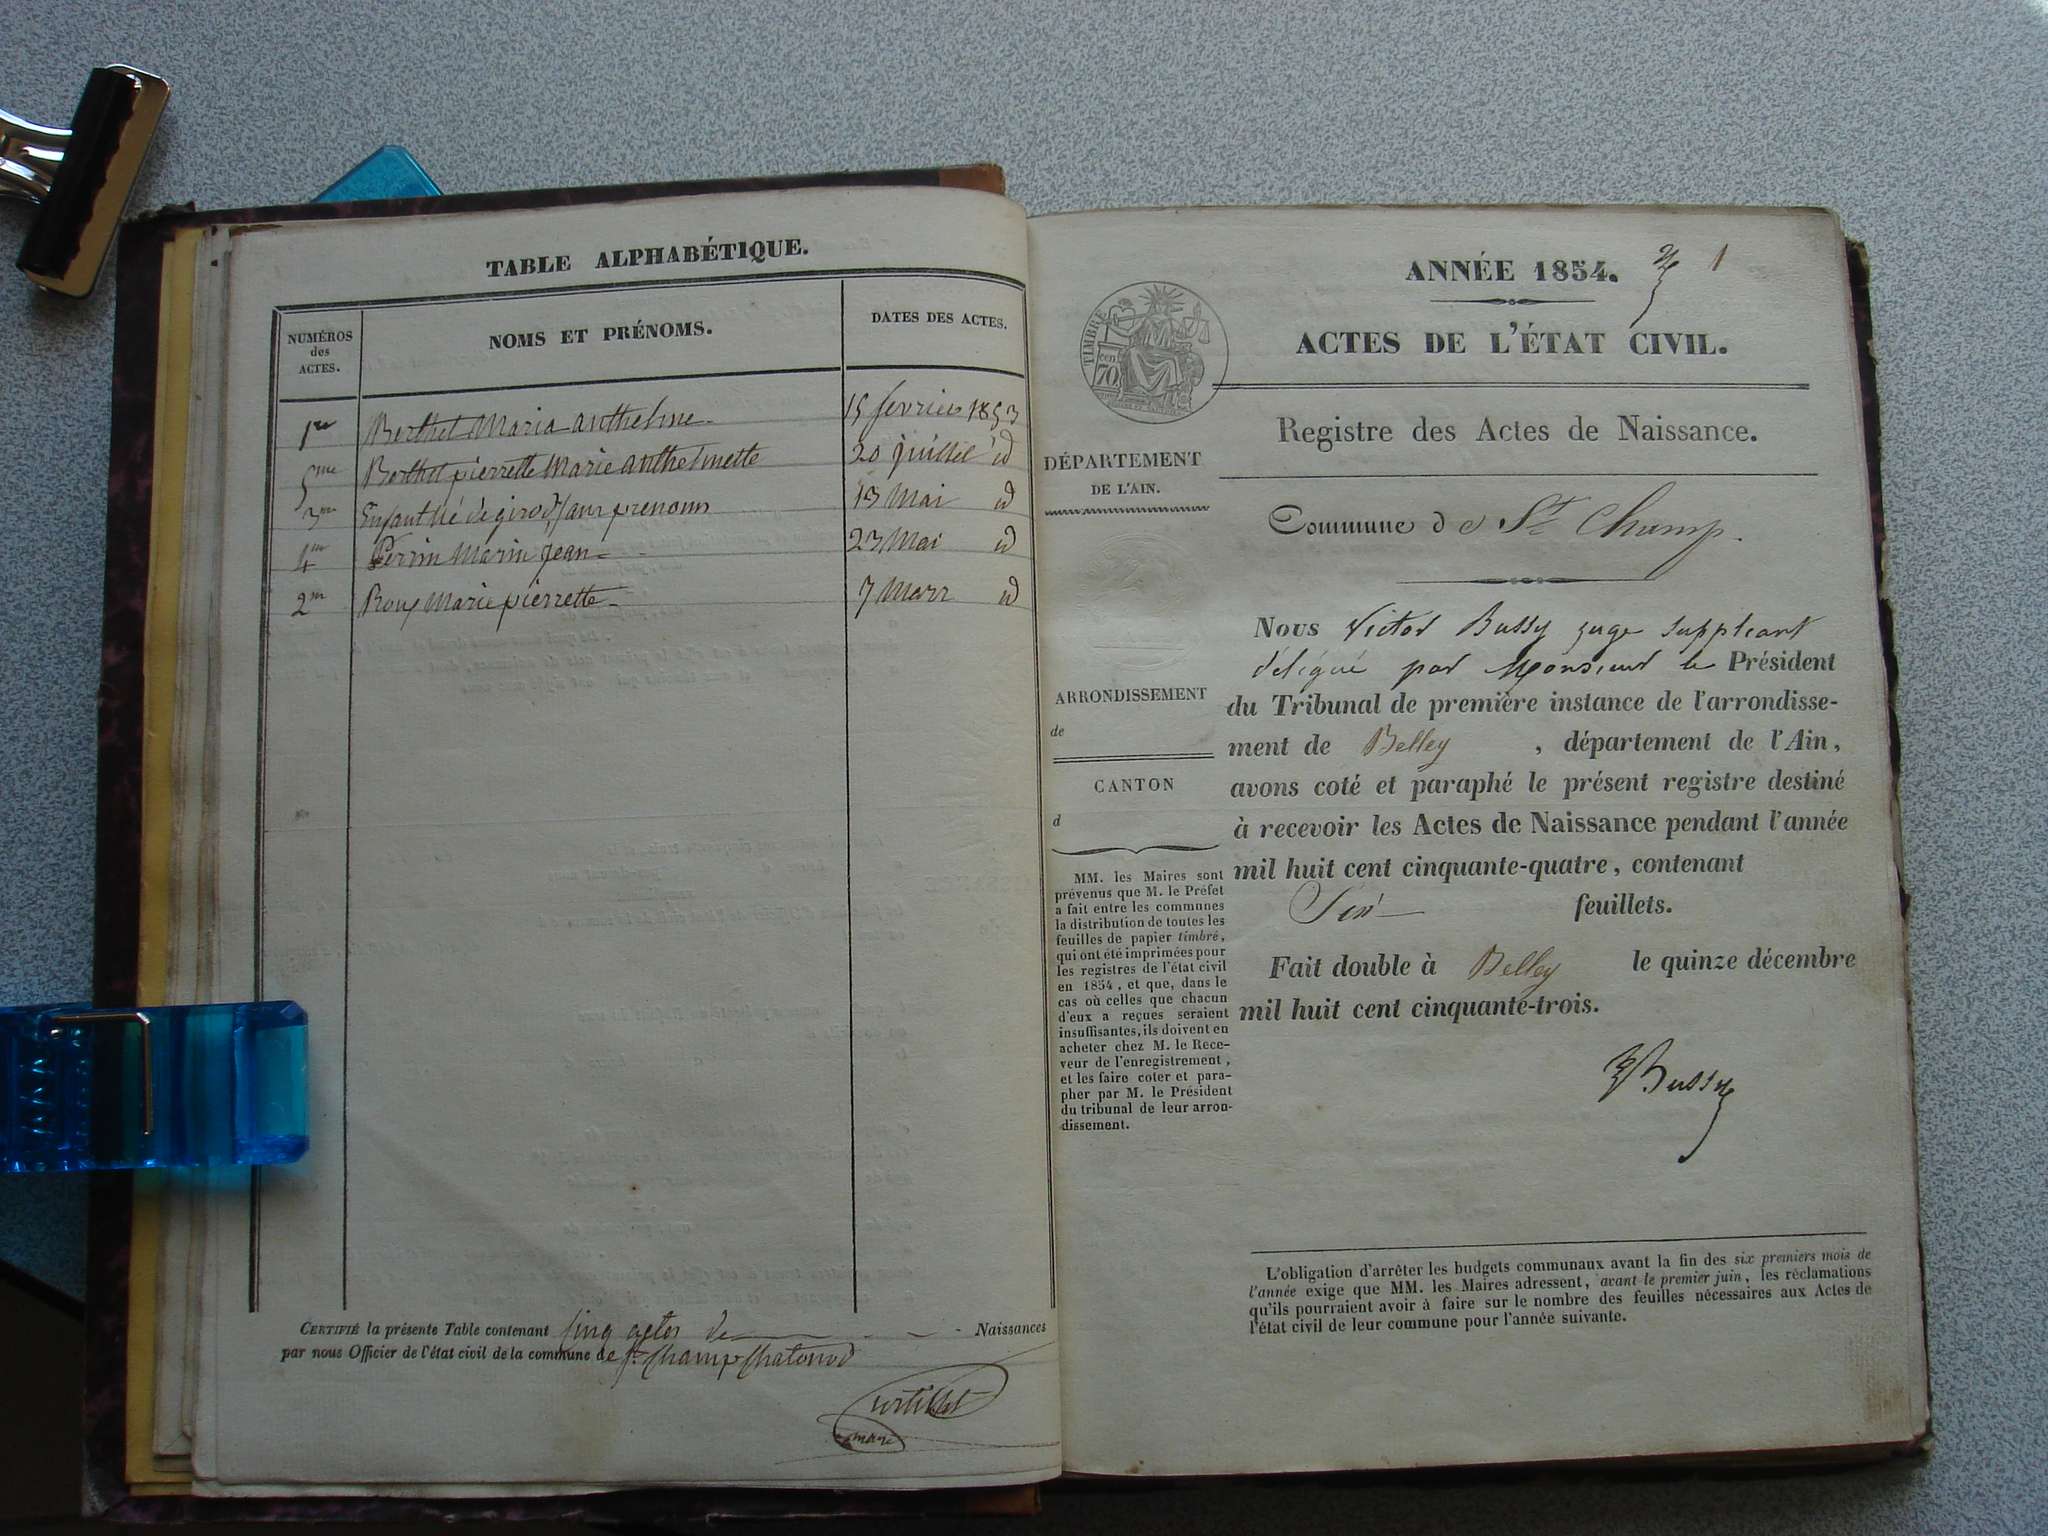 TABLE ALPHABÉTIQUE.
NUMÉROS
des
ACTES.
NOMS ET PRÉNOMS.
DATES DES ACTES.
1re Berthet Maria anthelme 15 fevrier 1853
5me Berthet pierrette Marie anthelmette 20 juillet id
3me Enfant né de girod sans prenoms 13 Mai id
4me Perrin Marin jean 23 Mai id
2me Roux Marie pierrette 7 Mars id
CERTIFIÉ la présente Table contenant cinq actes de Naissances
par nous Officier de l'état civil de la commune de St. Champ Chatonod
Curtillet
maire
ANNÉE 1854. 1
ACTES DE L'ÉTAT CIVIL.
TIMBRE
cen
70
Registre des Actes de Naissance.
DÉPARTEMENT
DE L'AIN.
Commune de St Champ.
Nous Victor Bussy juge suppleant
délégué par Monsieur le Président
du Tribunal de première instance de l'arrondisse-
ment de Belley, département de l'Ain,
avons coté et paraphé le présent registre destiné
à recevoir les Actes de Naissance pendant l'année
mil huit cent cinquante-quatre, contenant
Six feuillets.
Fait double à Belley le quinze décembre
mil huit cent cinquante-trois.
VBussy
ARRONDISSEMENT
de
CANTON
d
MM. les Maires sont
prévenus que M. le Préfet
a fait entre les communes
la distribution de toutes les
feuilles de papier timbré,
qui ont été imprimées pour
les registres de l'état civil
en 1854, et que, dans le
cas où celles que chacun
d'eux a reçues seraient
insuffisantes, ils doivent en
acheter chez M. le Rece-
veur de l'enregistrement,
et les faire coter et para-
pher par M. le Président
du tribunal de leur arron-
dissement.
L'obligation d'arrêter les budgets communaux avant la fin des six premiers mois de
l'année exige que MM. les Maires adressent, avant le premier juin, les réclamations
qu'ils pourraient avoir à faire sur le nombre des feuilles nécessaires aux Actes de
l'état civil de leur commune pour l'année suivante.